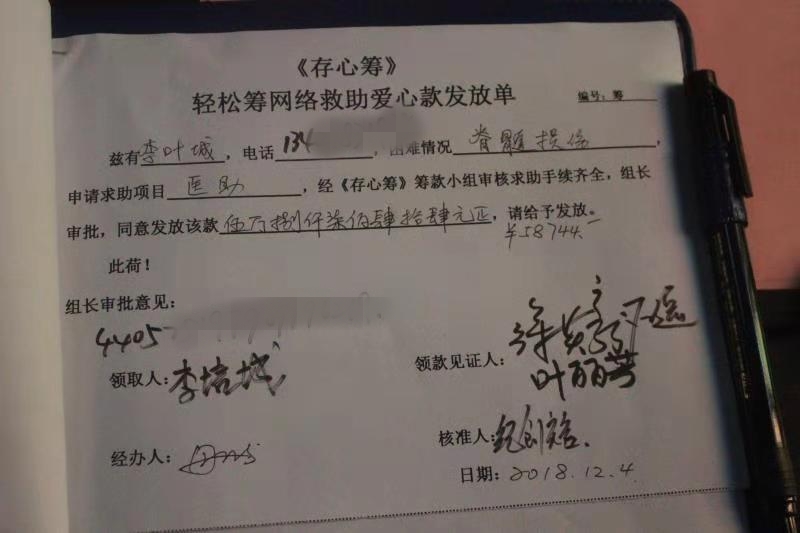 《存心筹》
轻松筹网络救助爱心款发放单
编号：筹
兹有李叶城，电话134，困难情况脊髓损伤，
申请求助项目医助，经《存心筹》筹款小组审核求助手续齐全，组长
审批，同意发放该款伍万捌仟柒佰肆拾肆元正，请给予发放。
￥58744.—
此荷！
组长审批意见：
4405
领取人：李培城
领款见证人：
叶丽芳
经办人：
核准人：纪创裕
日期：2018.12.4.